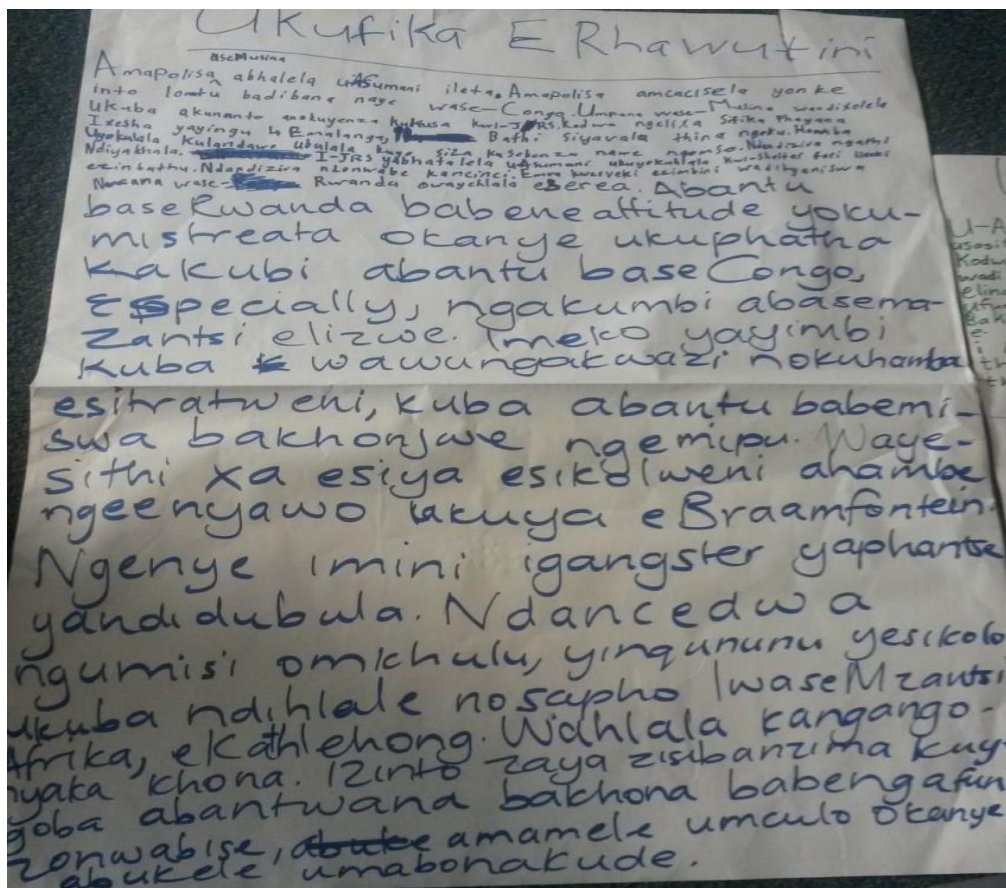 Ukufika E Rhawutini
aseMusina
Amapolisa abhalela uASumani ileta. Amapolisa amcacisela yonke
into lomntu badibana naye wase-Congo. Umpana wase-Musina wandixelela
ukuba akunanto anokuyenza kufusa kwi-JRS. Kodwa ngelixa sifika Phayana
Ixesha yayingu 4 Emalanga, Bathi siyavala thina ngoku. Hamba
Uyokulala ubalala kuze siza kusebenza nawe ngomso. Ndandiziva ngathi
Ndiyakhala. I-JRS yabhatalela uASumani ukuyokuhlala kwi-shelter for
ezimbathu. Ndandiziva ndonwabe kancinci. Emva kweeveki ezimbini wadibaniswa
Nencana wase- Rwanda owayehlala eBerea. Abantu
baseRwanda babene attitude yoku-
mistreata okanye ukuphatha
kakubi abantu baseCongo,
Especially, ngakumbi abasema-
zantsi elizwe. Imeko yayimbi
kuba wawungakwazi nokuhamba
esitratweni, kuba abantu babemi-
swa bakhonjwe ngemipu. Waye-
sithi xa esiya esikolweni ahambe
ngeenyawo ukuya eBraamfontein.
Ngenye imini igangster yaphantse
yandidubula. Ndancedwa
ngumisi omkhulu, yinqununu yesikolo
ukuba ndihlale nosapho lwaseMzantsi
Afrika, eKathlehong. Wdhlala kangango-
nyaka khona. Izinto zaya zisibanzima kuy
goba abantwana bakhona babengafun
zonwabise, abuke amamele umculo okanye
abukele umabonakude.
U-A
Kodw
wadi
elin